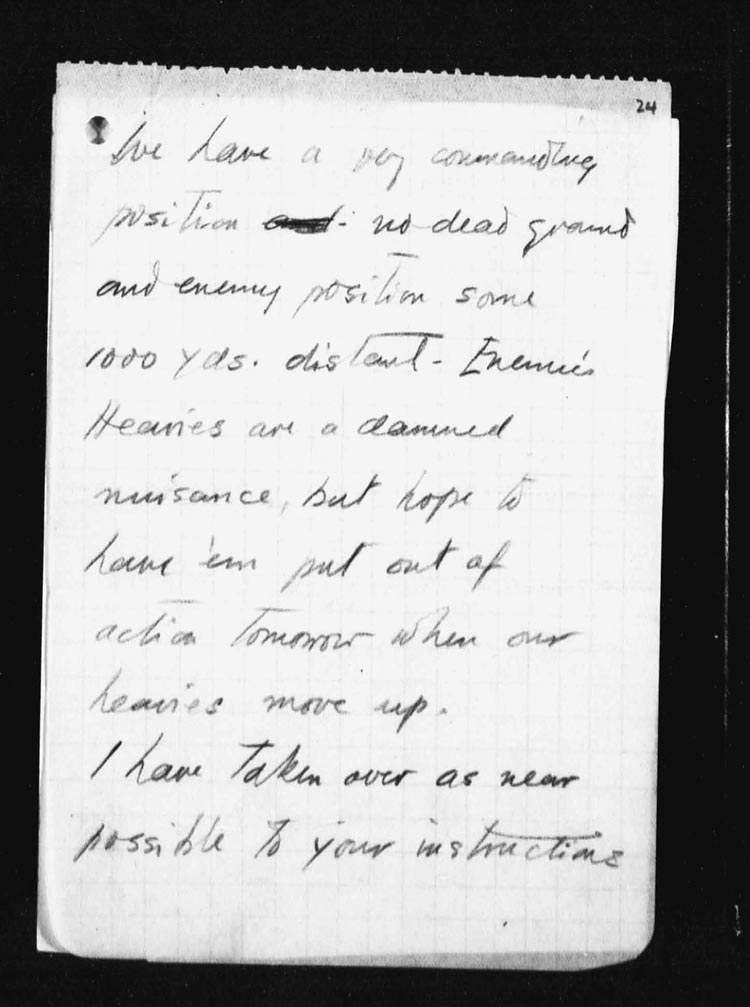 24
We have a very commanding
position - no dead ground
and enemy position some
1000 yds. distant - Enemies
Heavies are a damned
nuisance, but hope to
have 'em put out of
action tomorrow when our
heavies move up.
I have taken over as near
possible to your instructions